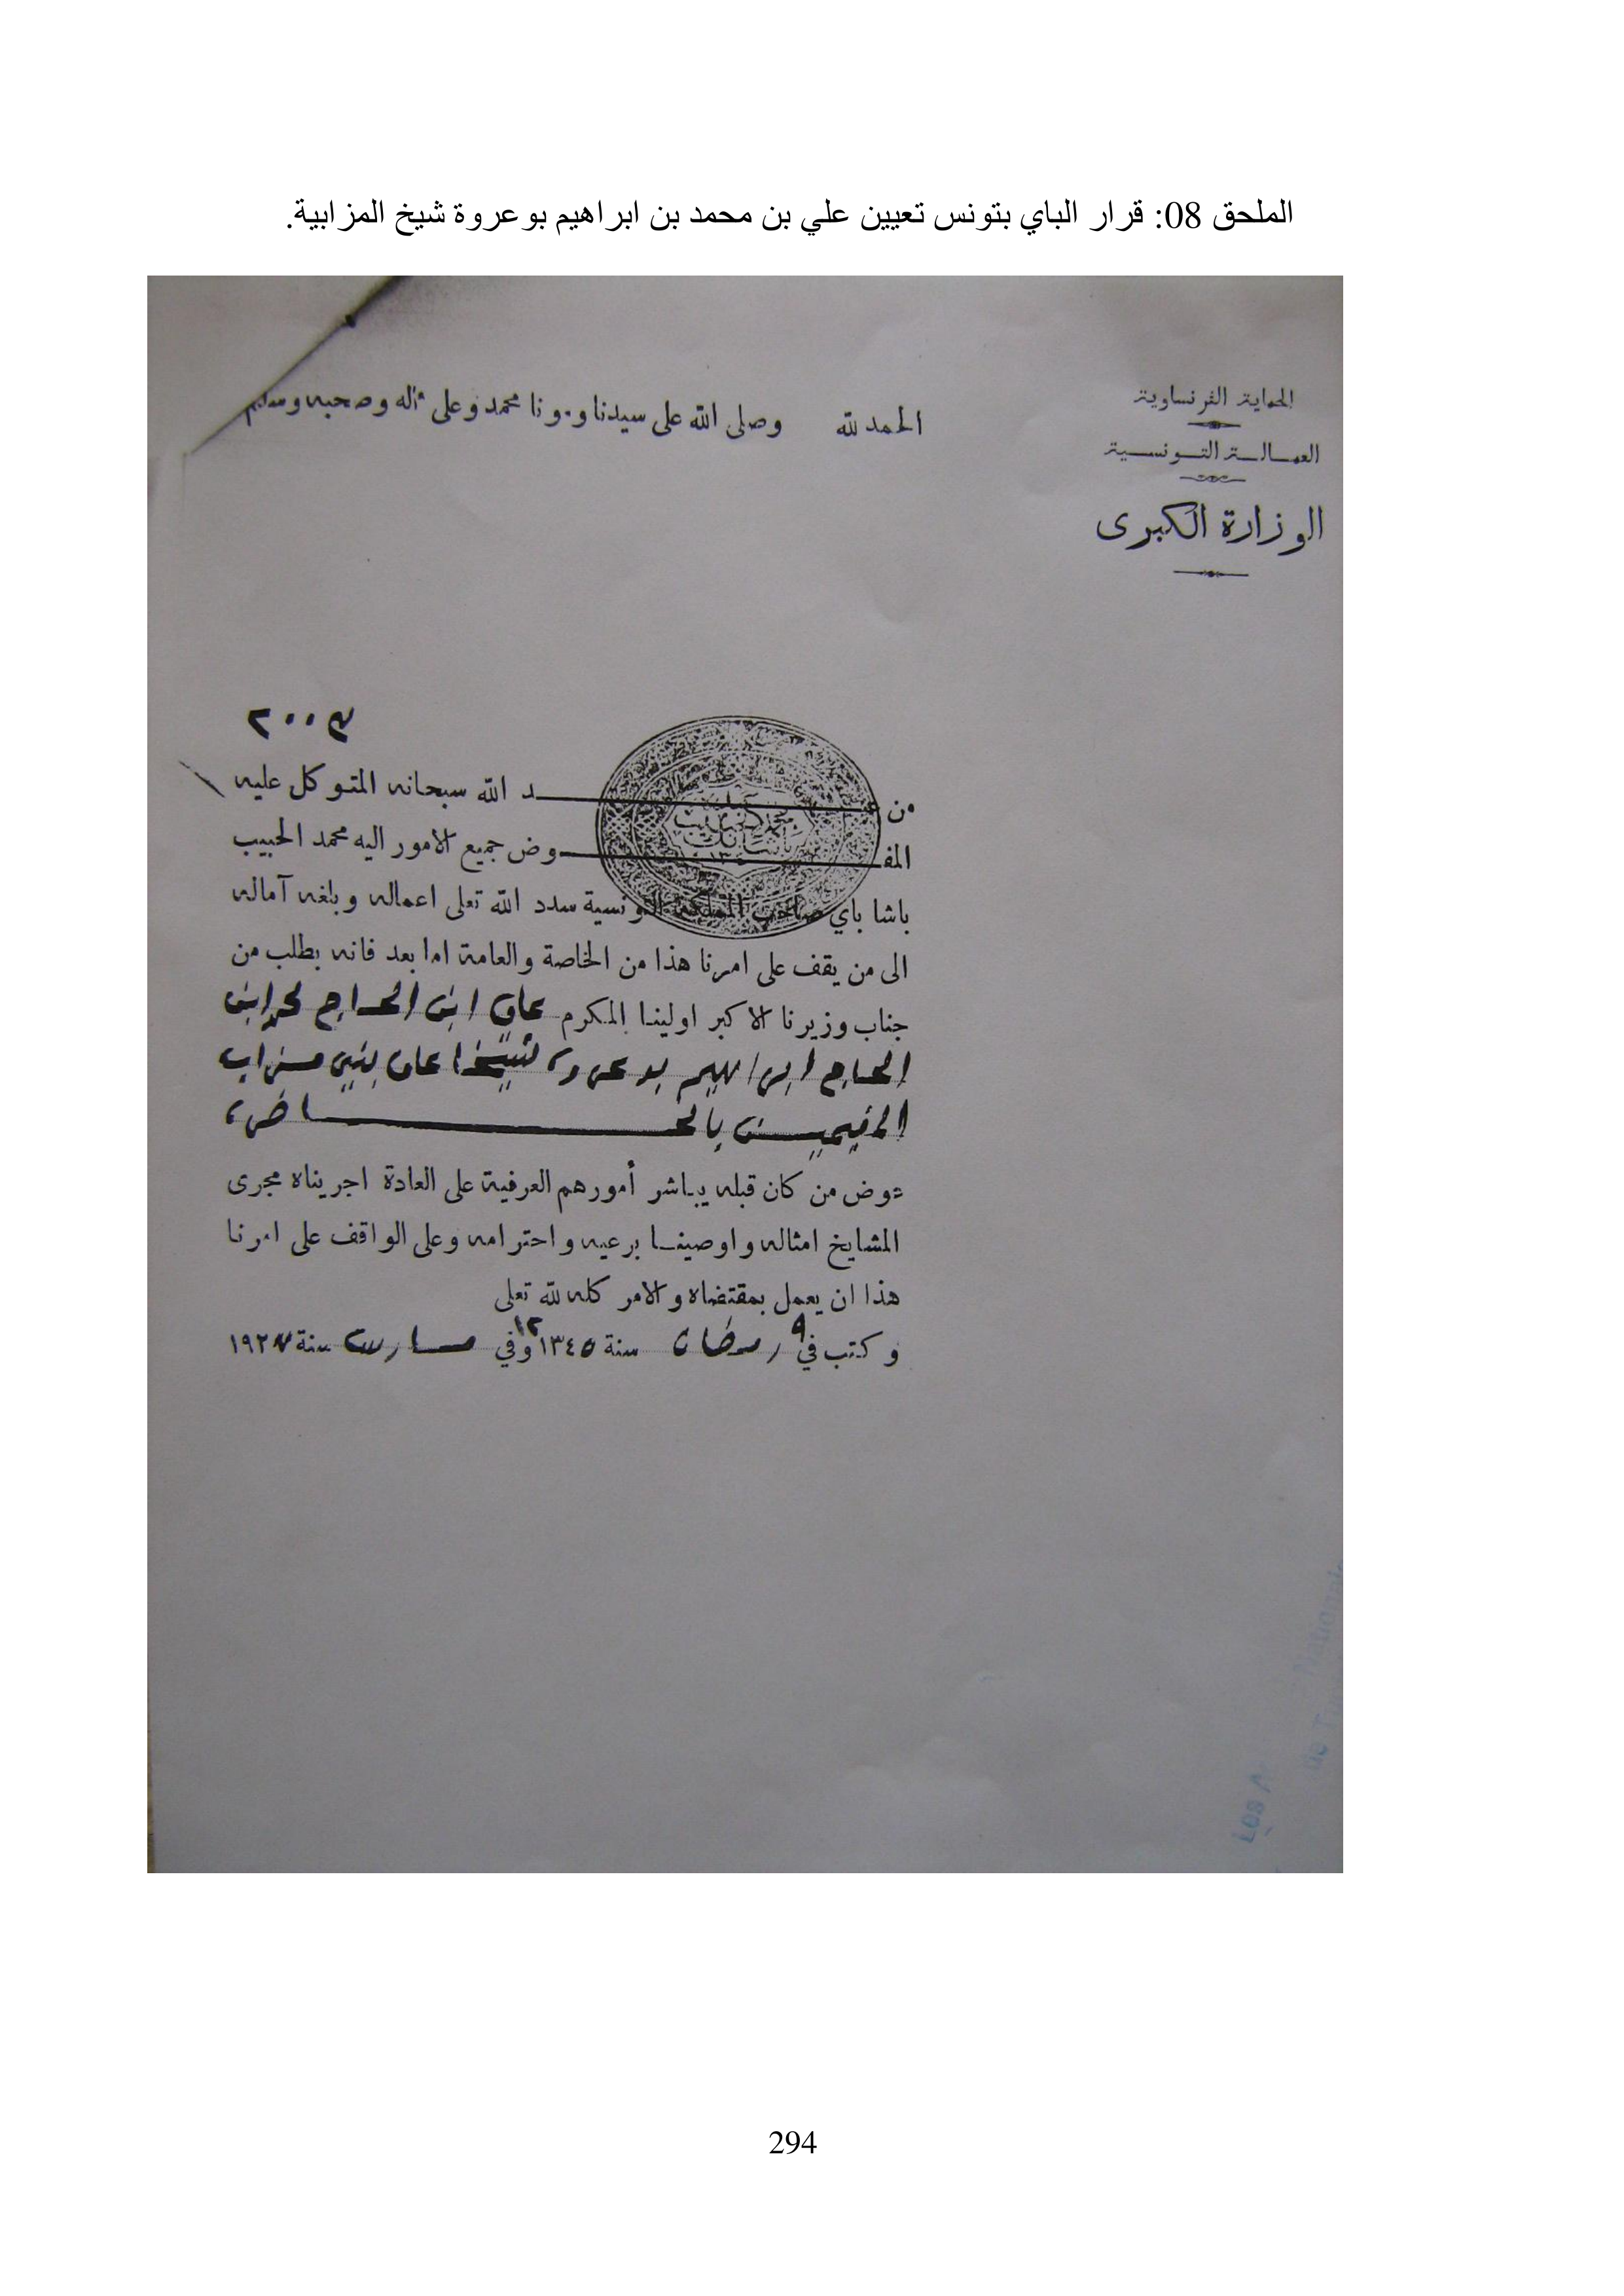 الملحق 08: قرار الباي بتونس تعيين علي بن محمد بن ابراهيم بوعروة شيخ المزابية.
الحماية الفرنساوية
العمالة التونسية
الوزارة الكبرى
الحمد لله وصلى الله على سيدنا ومونا محمد وعلى آله وصحبه وسلم
٢٠٠٣
من عبد الله سبحانه المتوكل عليه
المفوض جميع الامور اليه محمد الحبيب
باشا باي صاحب المملكة التونسية سدد الله تعلى اعماله وبلغه آماله
الى من يقف على امرنا هذا من الخاصة والعامة اما بعد فانه بطلب من
جناب وزيرنا الاكبر اولينا المكرم علي ابن الحاج محمد ابن
الحاج ابراهيم بوعروة شيخا على بني مزاب
المقيمين بالحاضرة
عوض من كان قبله يباشر أمورهم العرفية على العادة اجريناه مجرى
المشايخ امثاله واوصينا برعيه واحترامه وعلى الواقف على امرنا
هذا ان يعمل بمقتضاه والامر كله لله تعلى
وكتب في ٩ رمضان سنة ١٣٤٥ وفي ١٢ مارس سنة ١٩٢٧
294